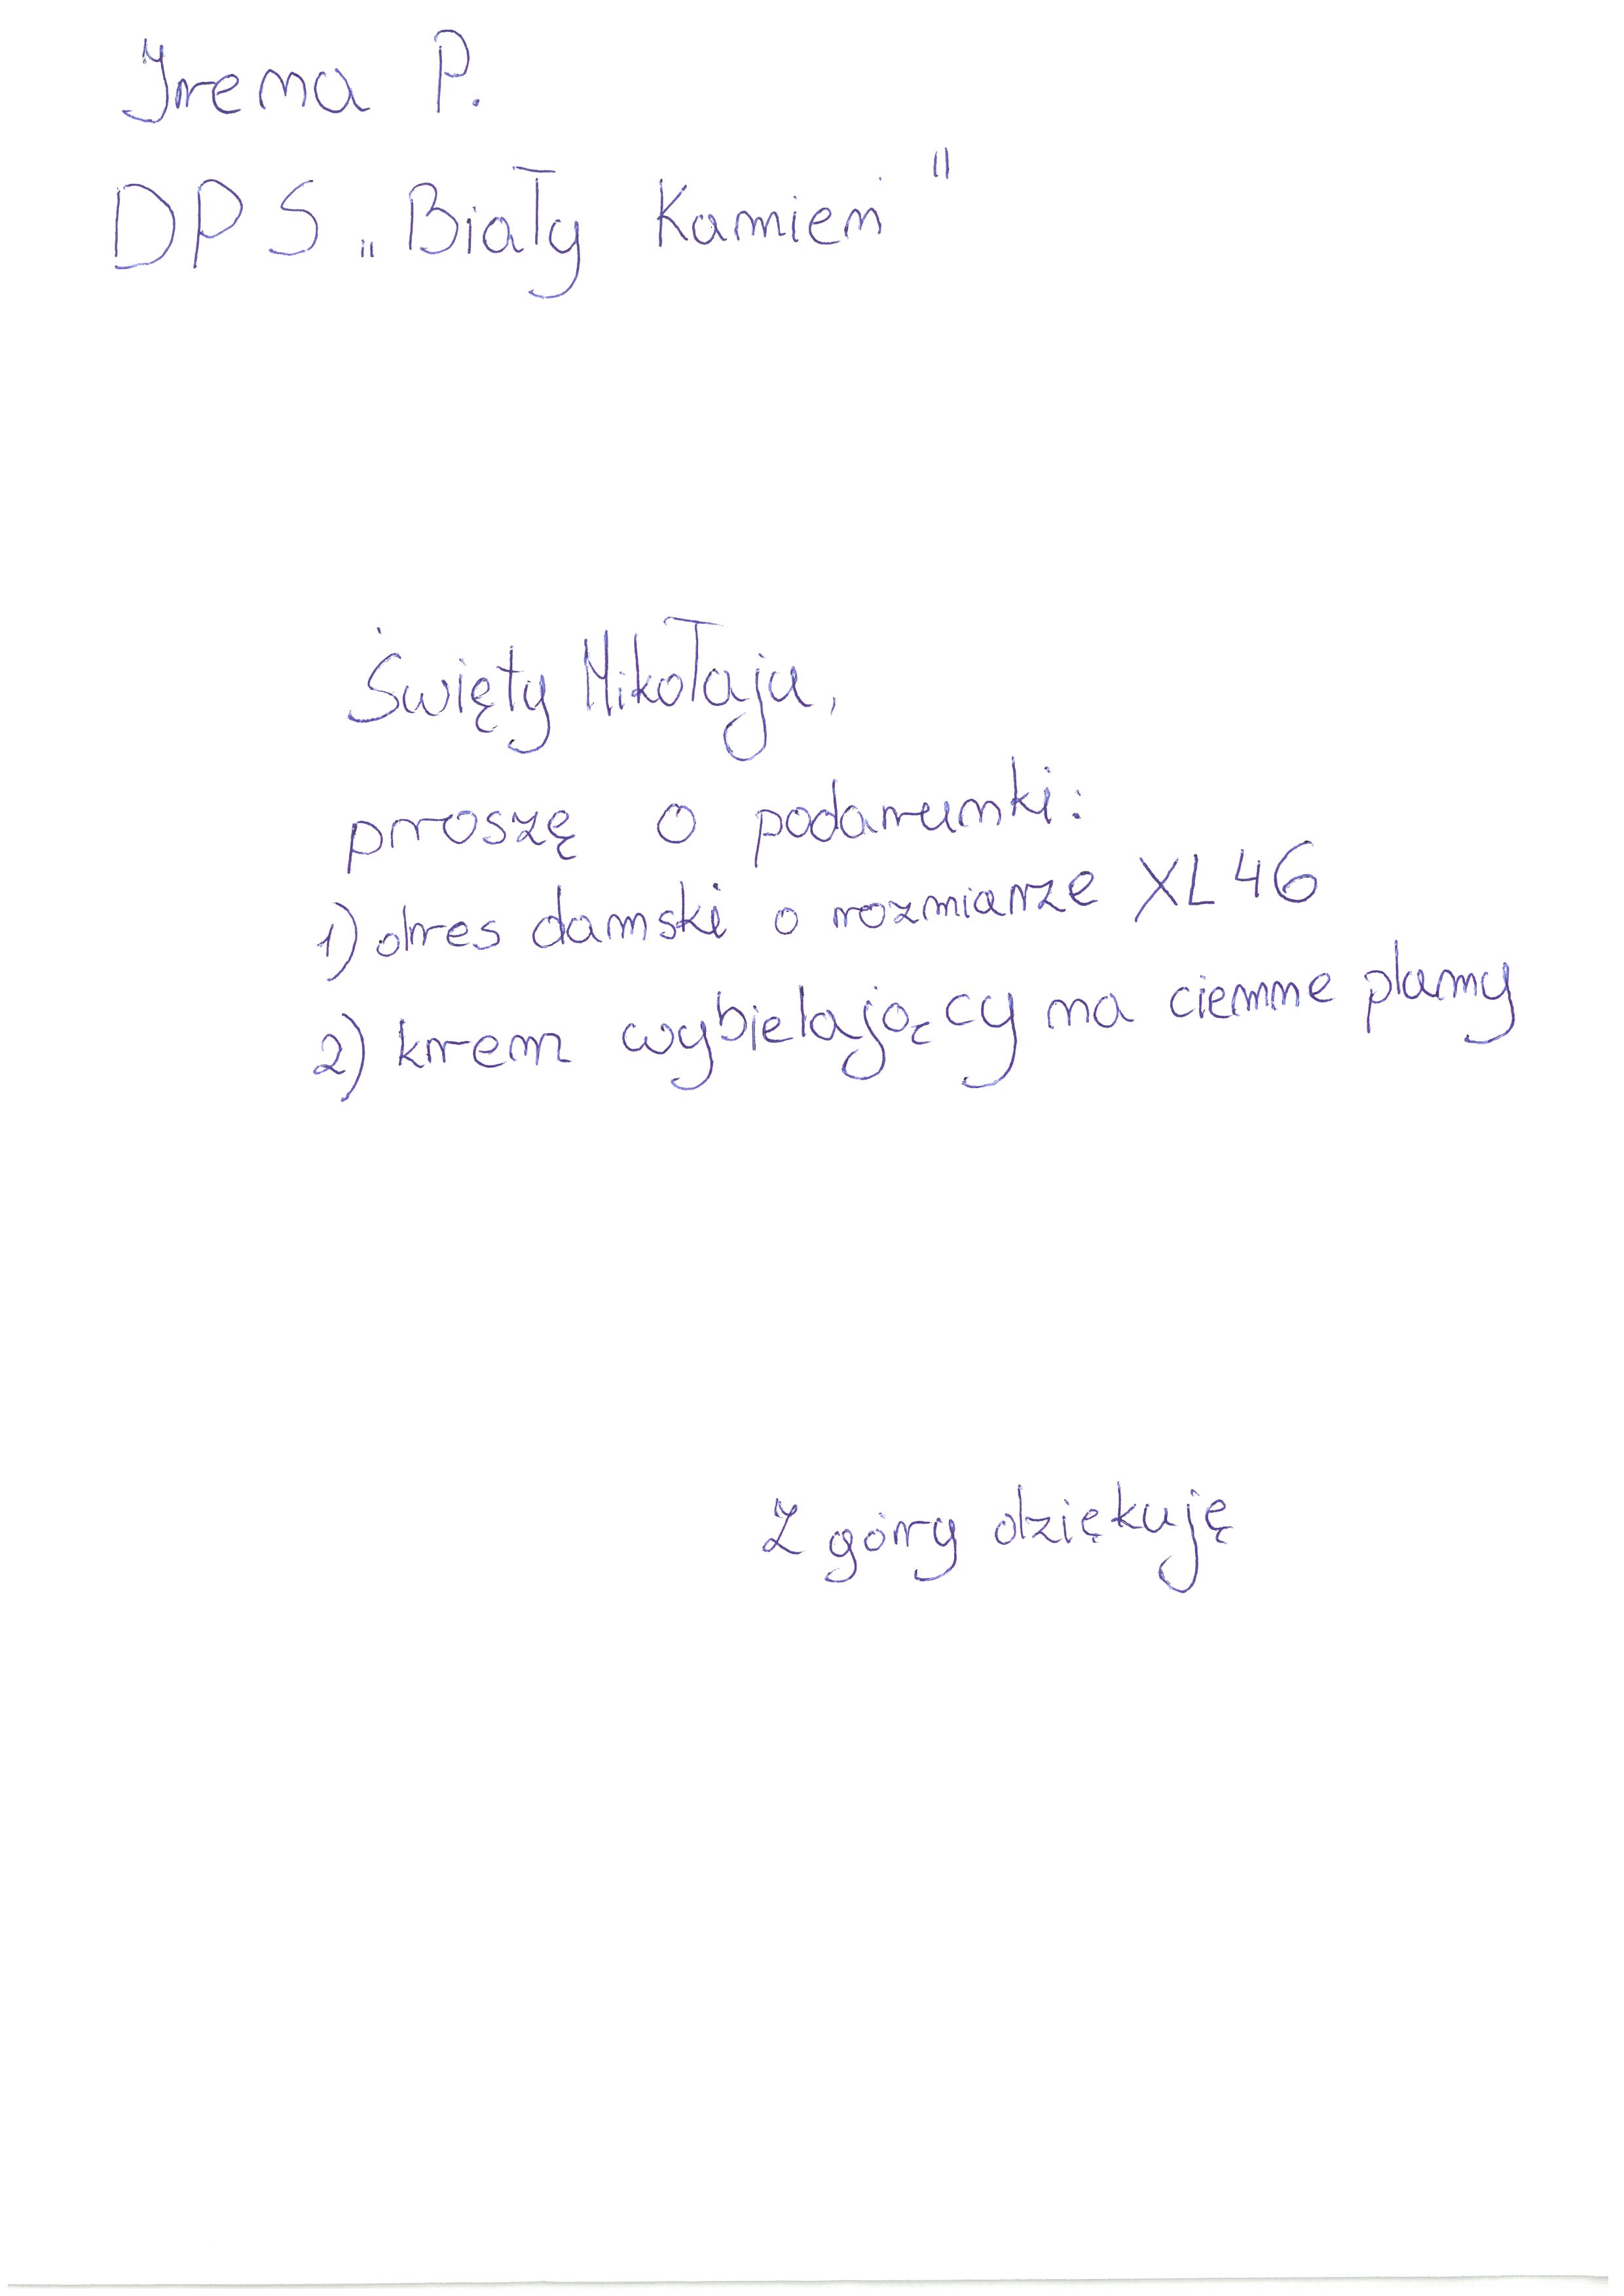 Irena P.
DPS „Biały Kamień"
Święty Mikołaju,
proszę o podarunki:
1) dres damski o rozmiarze XL 46
2) krem wybielający na ciemne plamy
Z góry dziękuję